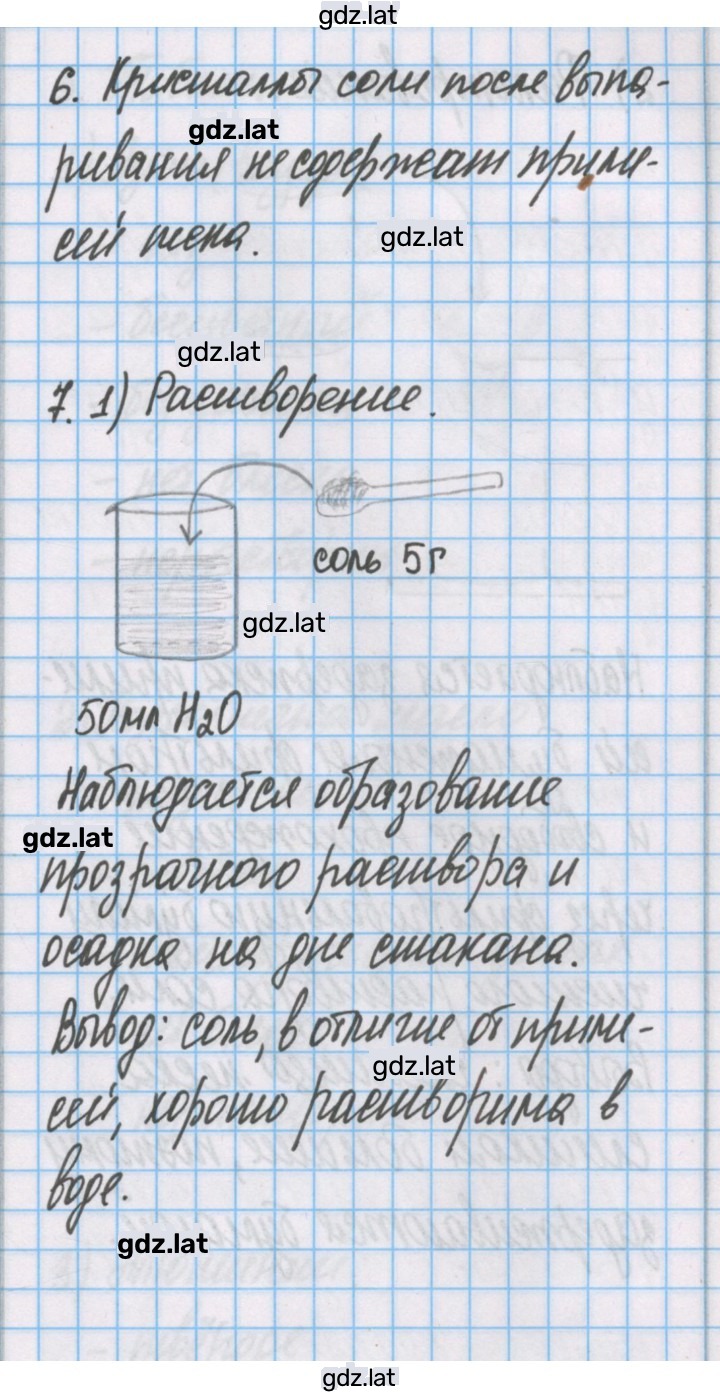 gdz.lat
6. Кристаллы соли после выпа-
gdz.lat
ривания не содержат приме-
сей мела.
gdz.lat
gdz.lat
7. 1) Растворение.
соль 5г
gdz.lat
50мл H₂O
Наблюдается образование
gdz.lat
прозрачного раствора и
осадка на дне стакана.
Вывод: соль, в отличие от приме-
gdz.lat
сей, хорошо растворима в
воде.
gdz.lat
gdz.lat